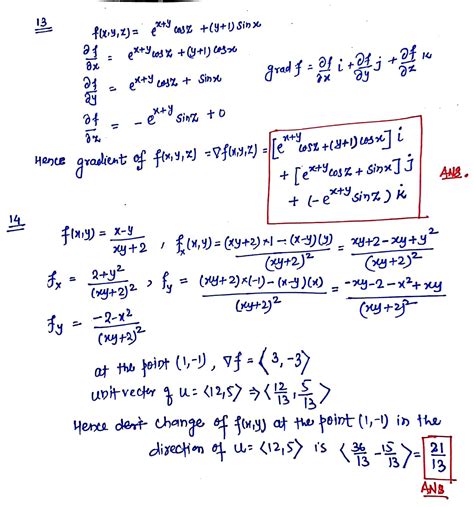 13
f(x,y,z) = e^{x+y} cosz + (y+1) sinx
∂f/∂x = e^{x+y} cosz + (y+1) cosx
∂f/∂y = e^{x+y} cosz + sinx
grad f = ∂f/∂x i + ∂f/∂y j + ∂f/∂z k
∂f/∂z = - e^{x+y} sinz + 0
Hence gradient of f(x,y,z) = ∇f(x,y,z) = [e^{x+y} cosz + (y+1) cosx] i
+ [e^{x+y} cosz + sinx] j
+ (-e^{x+y} sinz) k
ANS.
14
f(x,y) = (x-y)/(xy+2) , f_x(x,y) = ((xy+2)×1 - (x-y)(y))/(xy+2)^2 = (xy+2-xy+y^2)/(xy+2)^2
f_x = (2+y^2)/(xy+2)^2 , f_y = ((xy+2)×(-1) - (x-y)(x))/(xy+2)^2 = (-xy-2-x^2+xy)/(xy+2)^2
f_y = (-2-x^2)/(xy+2)^2
at the point (1,-1), ∇f = ⟨3,-3⟩
unit vector of u = ⟨12,5⟩ ⇒ ⟨12/13, 5/13⟩
Hence change of f(x,y) at the point (1,-1) in the
direction of u = ⟨12,5⟩ is ⟨36/13 - 15/13⟩ = 21/13
ANS